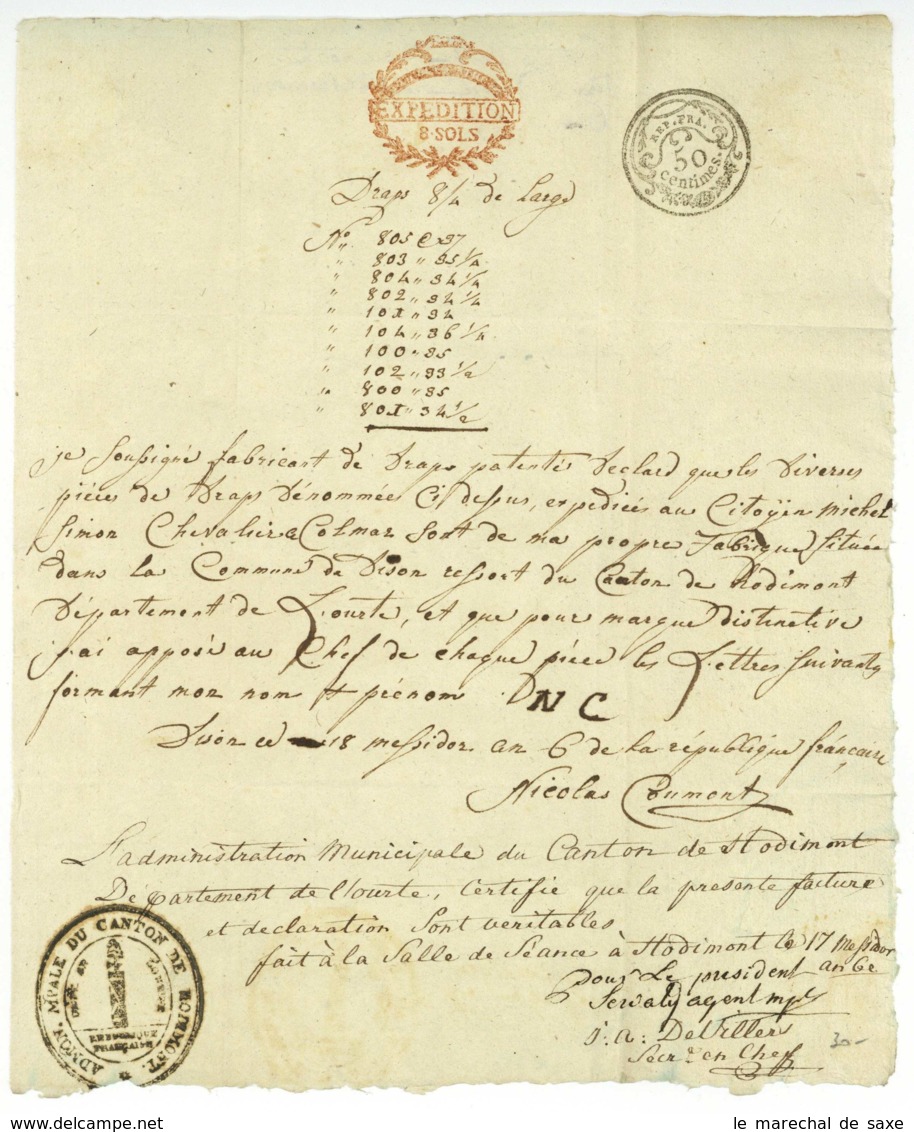 EXPEDITION
8 SOLS
REP. FRA.
50
centimes.
Draps 8/4 de Large
No. 805 @ 37
" 803 " 35 1/4
" 804 " 34 1/4
" 802 " 34 1/4
" 101 " 34
" 104 " 36 1/4
" 100 " 35
" 102 " 33 1/2
" 800 " 35
" 801 " 34 1/2
je soussigné fabricant de Draps patenté Declard que les Diverses
pièces de Draps Dénommée Ci dessus, expediées au Citoÿen michel
Simon Chevalier a Colmar sont de ma propre fabrique située
dans la Commune de Dison ressort du Canton de Hodimont
Département de L'ourte, et que pour marque distinctive
j'ai apposé au Chef de chaque pièce les Lettres suivants
formant mon nom et prénom D N C
Dison ce 18 messidor an 6 de la république françaire
Nicolas Coumont
L'administration Municipale du Canton de Hodimont
Département de l'ourte, Certifie que la presente facture
et declaration Sont veritables
fait à la Salle de Séance à Hodimont le 17 Messidor
an 6e
pour Le president
agent mpl
J: a: DeVillers
Secr. en Chef
ADMON. MPALE DU CANTON DE HODIMONT.
REPUBLIQUE
FRANCAISE
30-
www.delcampe.net
le marechal de saxe